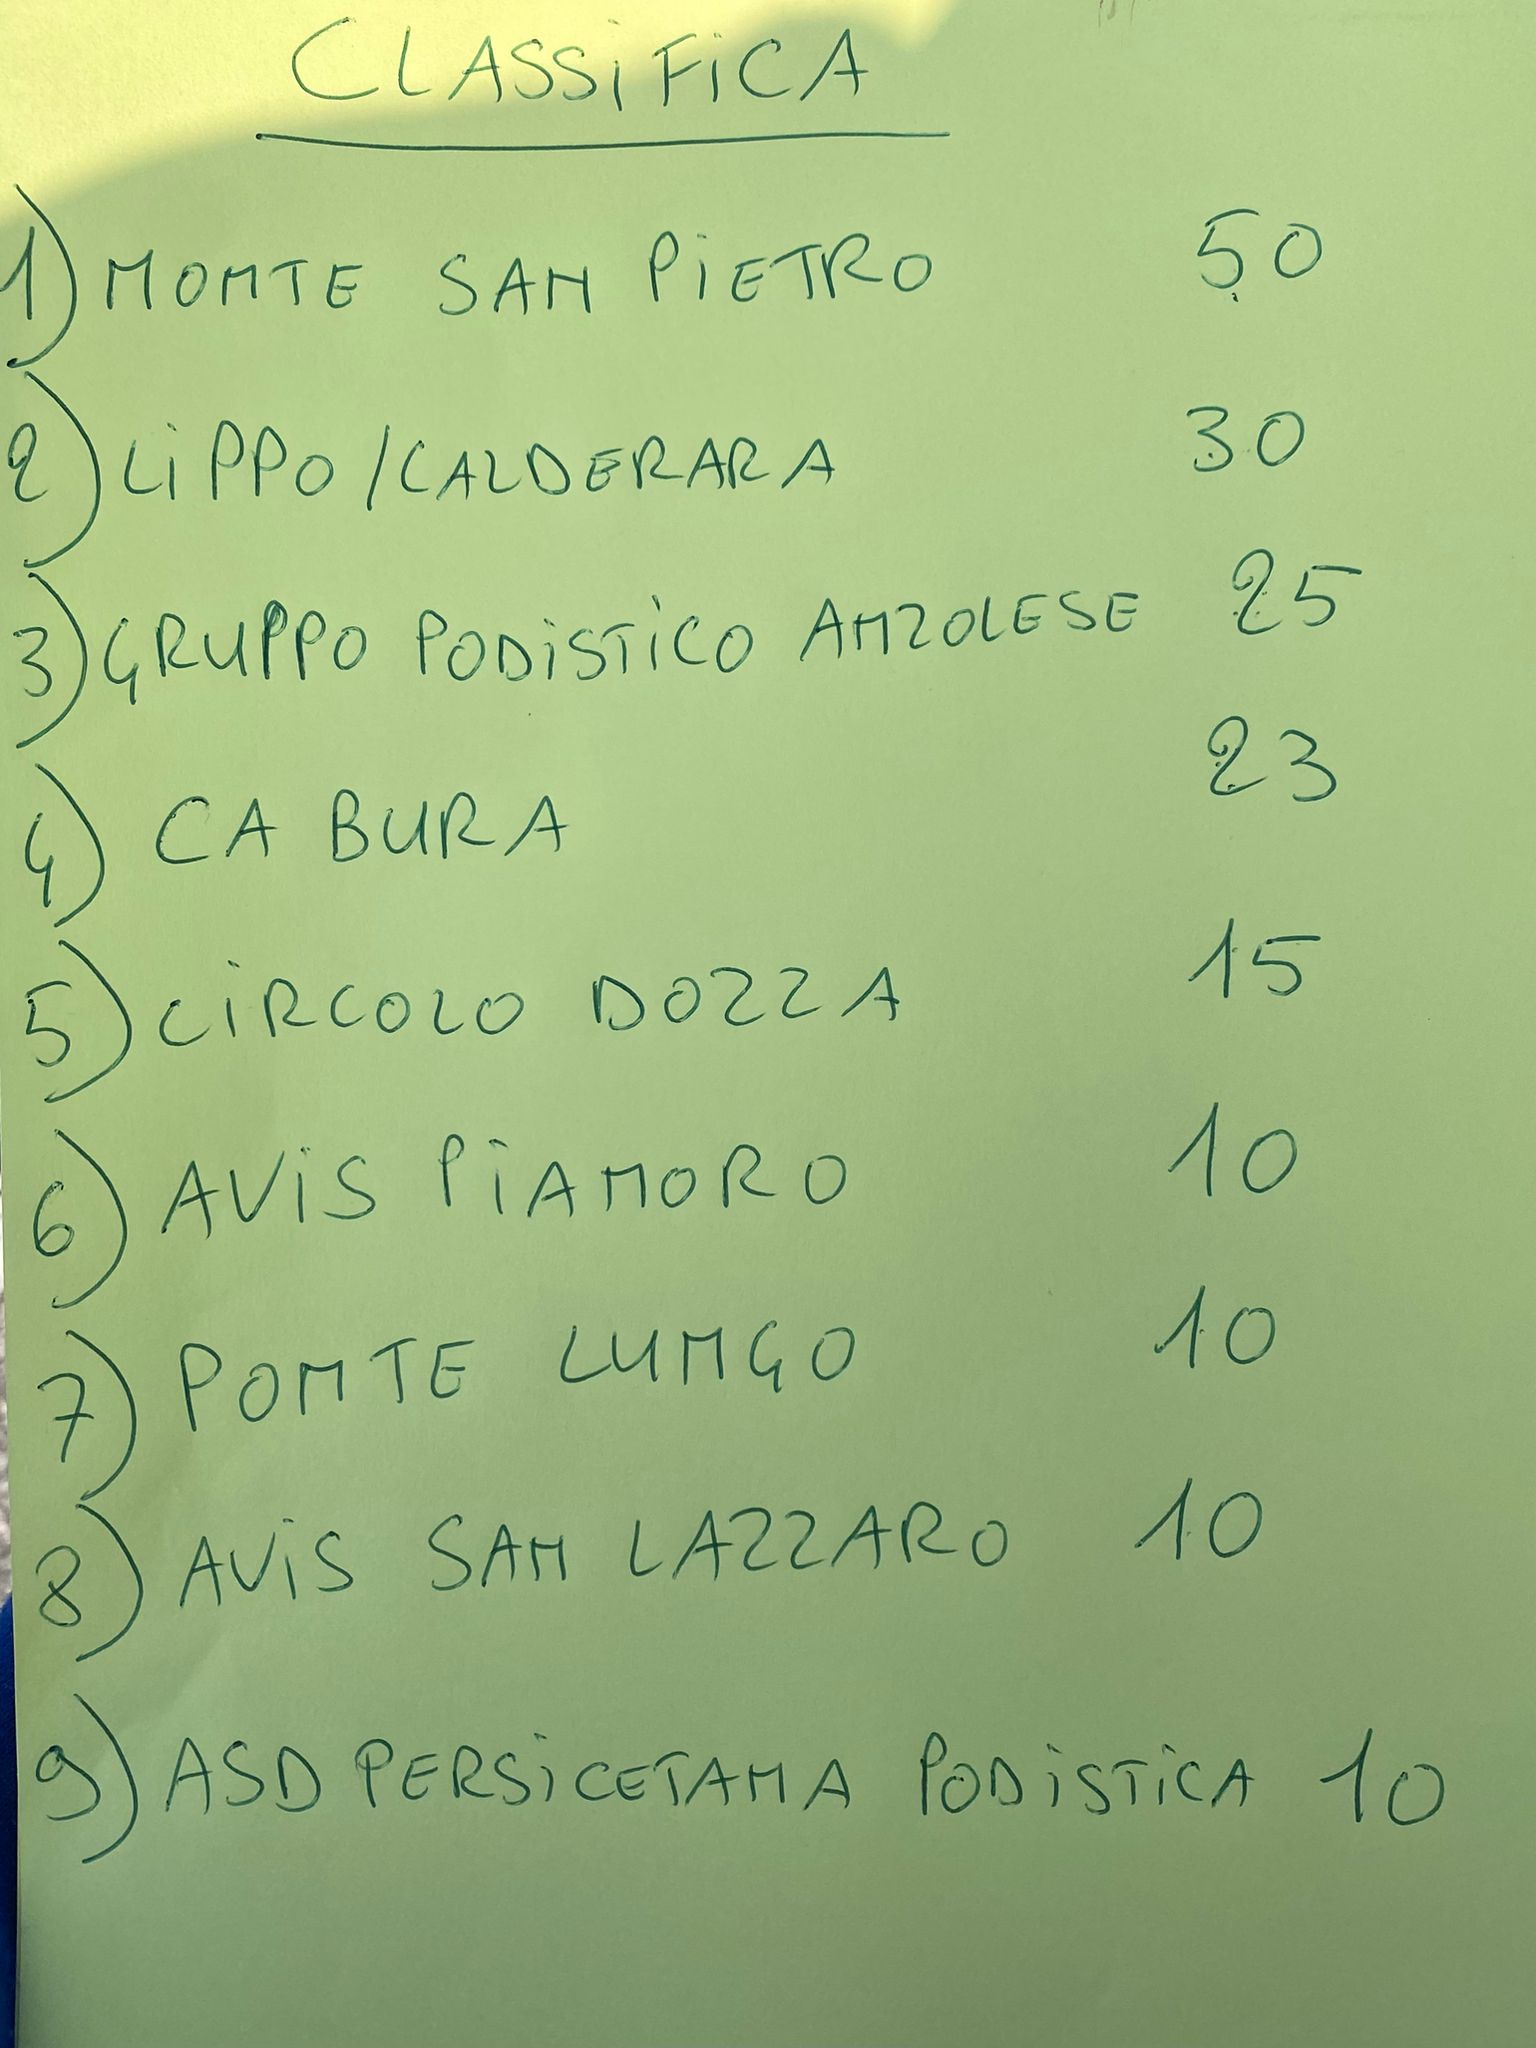 CLASSIFICA
1) MONTE SAN PIETRO 50
2) LIPPO/CALDERARA 30
3) GRUPPO PODISTICO ANZOLESE 25
4) CA BURA 23
5) CIRCOLO DOZZA 15
6) AVIS PIANORO 10
7) PONTE LUNGO 10
8) AVIS SAN LAZZARO 10
9) ASD PERSICETANA PODISTICA 10